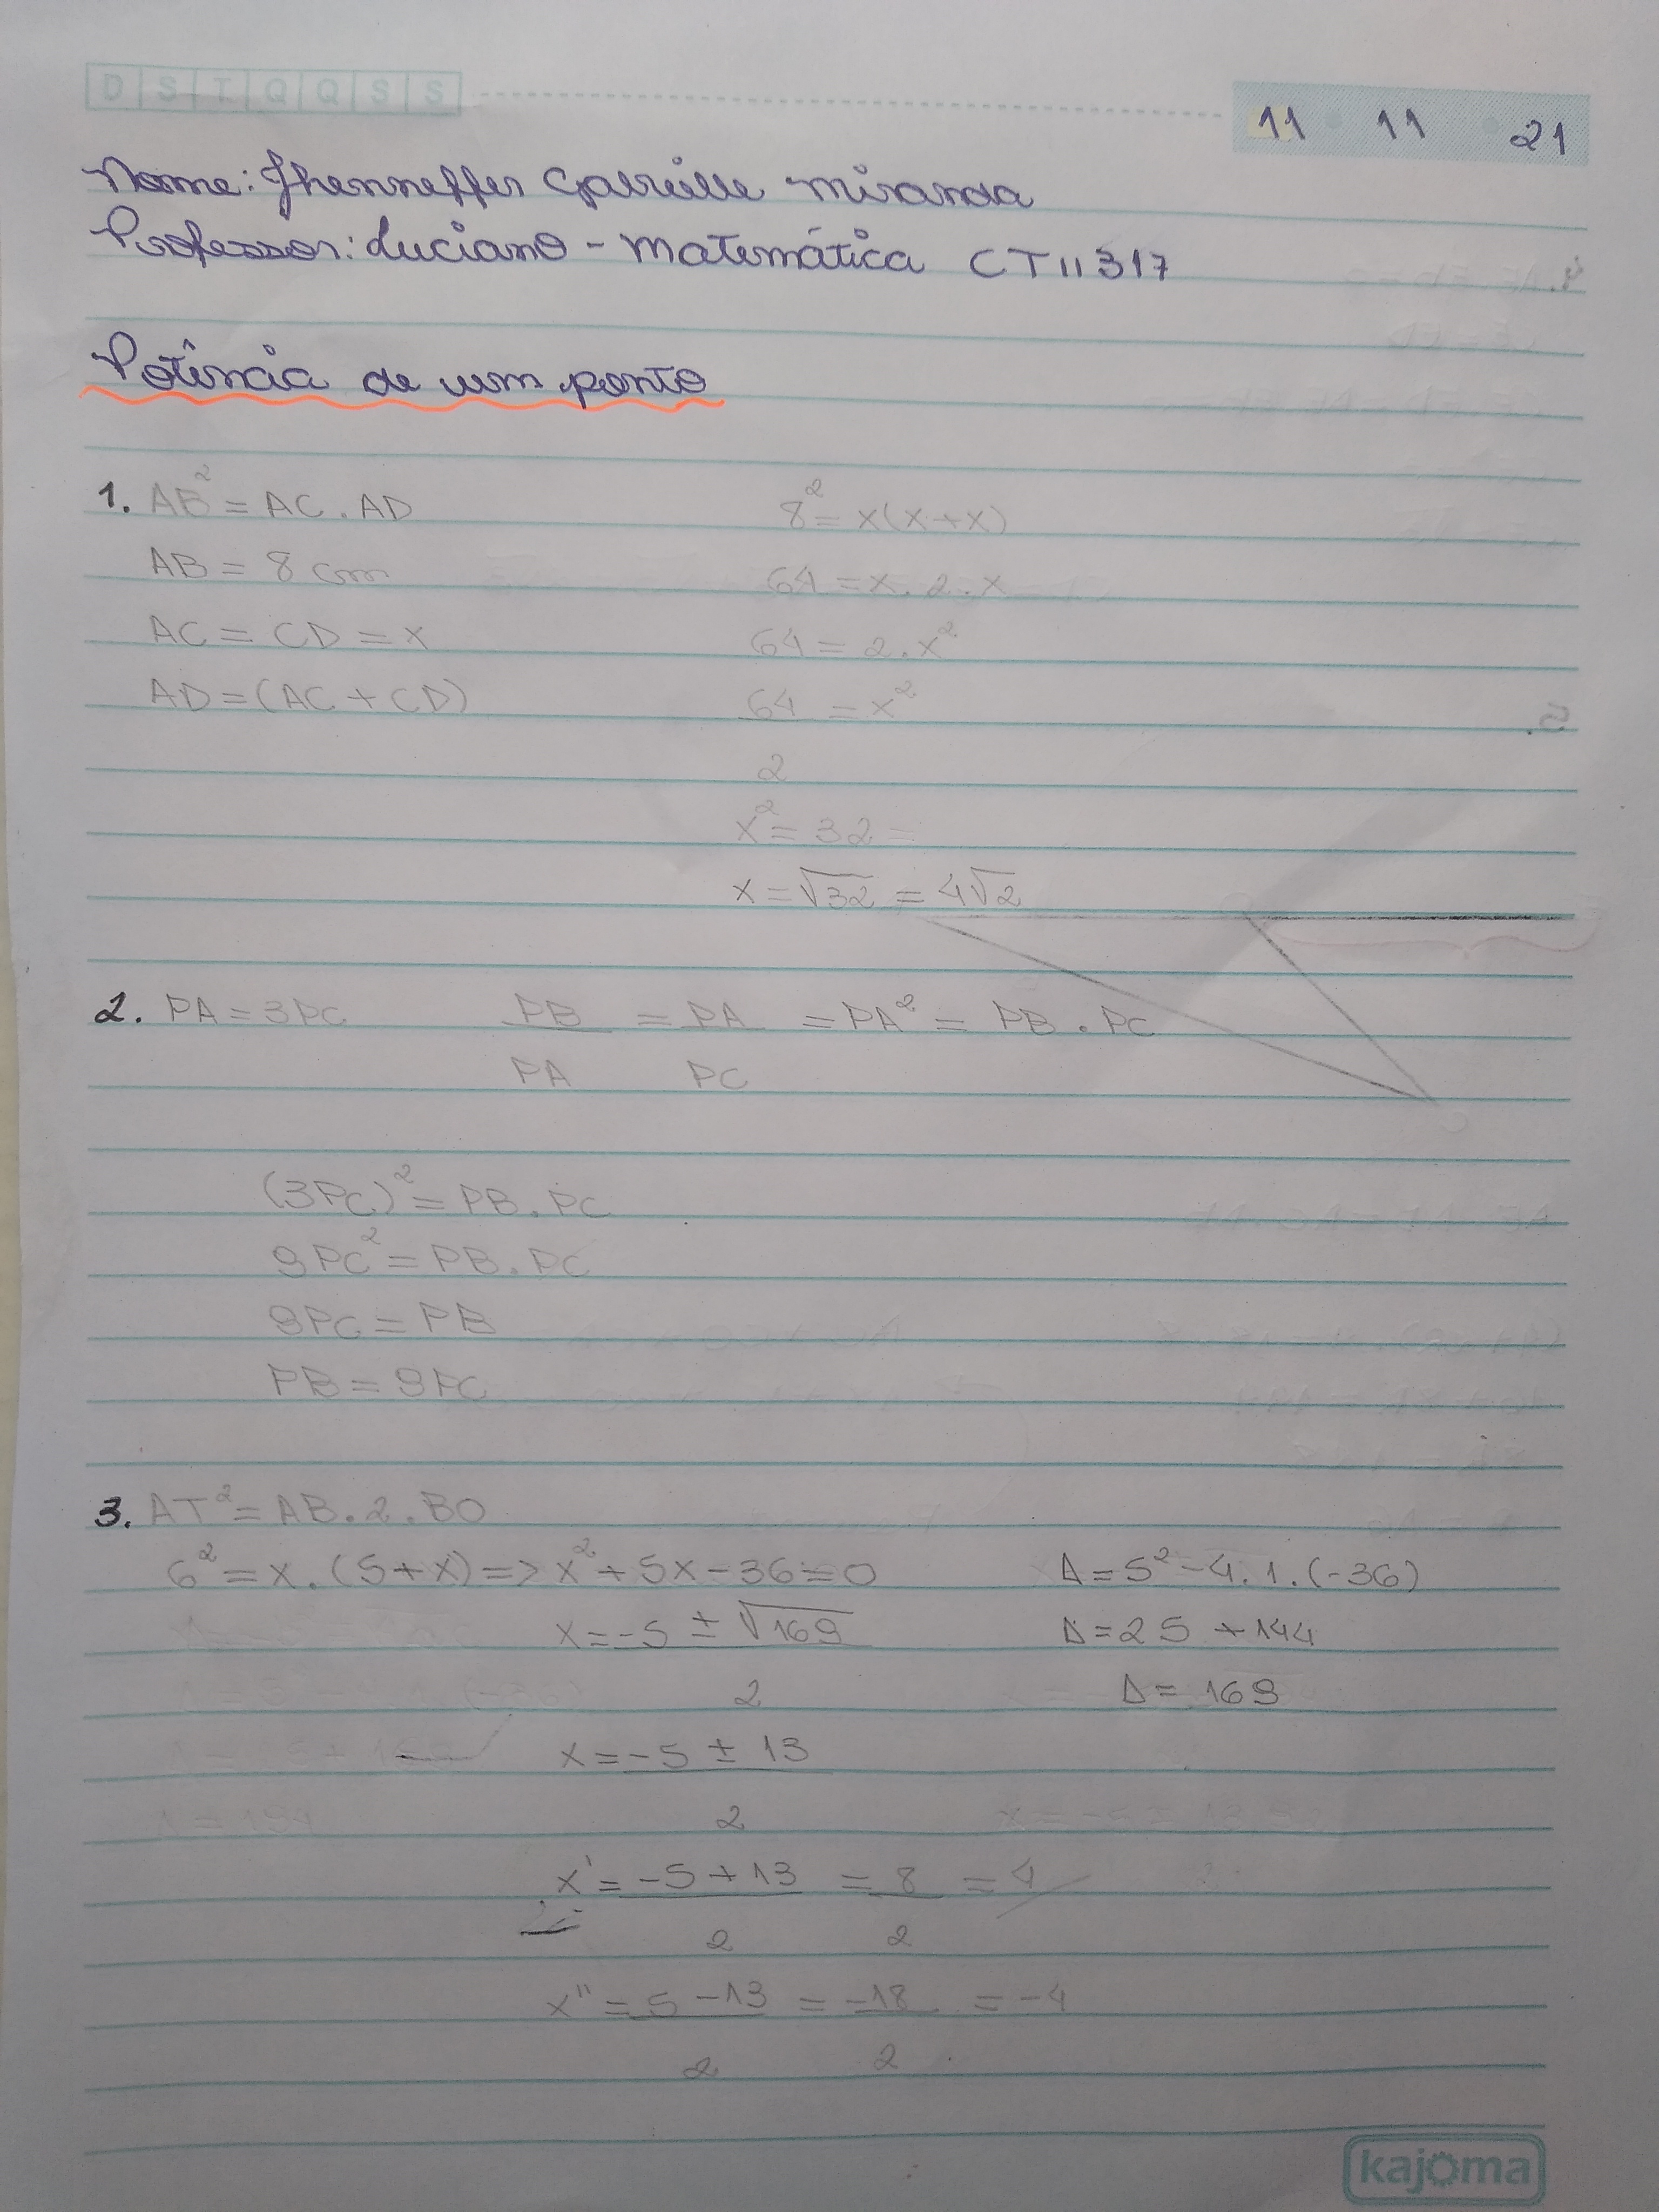 D S T Q Q S S
11 11 21
Nome: Jhenneffer Gabrielle Miranda
Professor: Luciano - Matemática CTII 317
Potência de um ponto
1. AB² = AC . AD
AB = 8 cm
AC = CD = x
AD = (AC + CD)
8² = x(x+x)
64 = x . 2 . x
64 = 2 . x²
64/2 = x²
x² = 32 =
x = √32 = 4√2
2. PA = 3PC PB/PA = PA/PC = PA² = PB . PC
(3PC)² = PB . PC
9PC² = PB . PC
9PC = PB
PB = 9PC
3. AT² = AB . 2 . BO
6² = x . (5+x) => x² + 5x - 36 = 0
x = -5 ± √169 / 2
x = -5 ± 13 / 2
x' = -5 + 13 / 2 = 8/2 = 4
x'' = 5 - 13 / 2 = -18/2 = -4
Δ = 5² - 4 . 1 . (-36)
Δ = 25 + 144
Δ = 169
kajoma